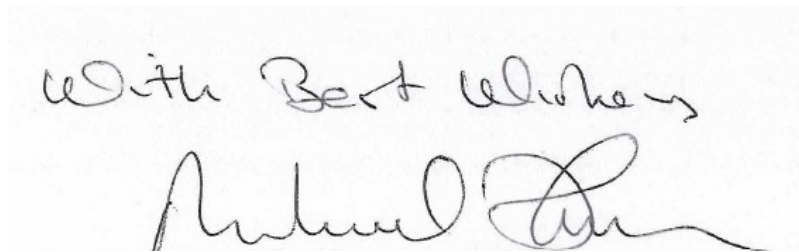 With Best Wishes
Michael